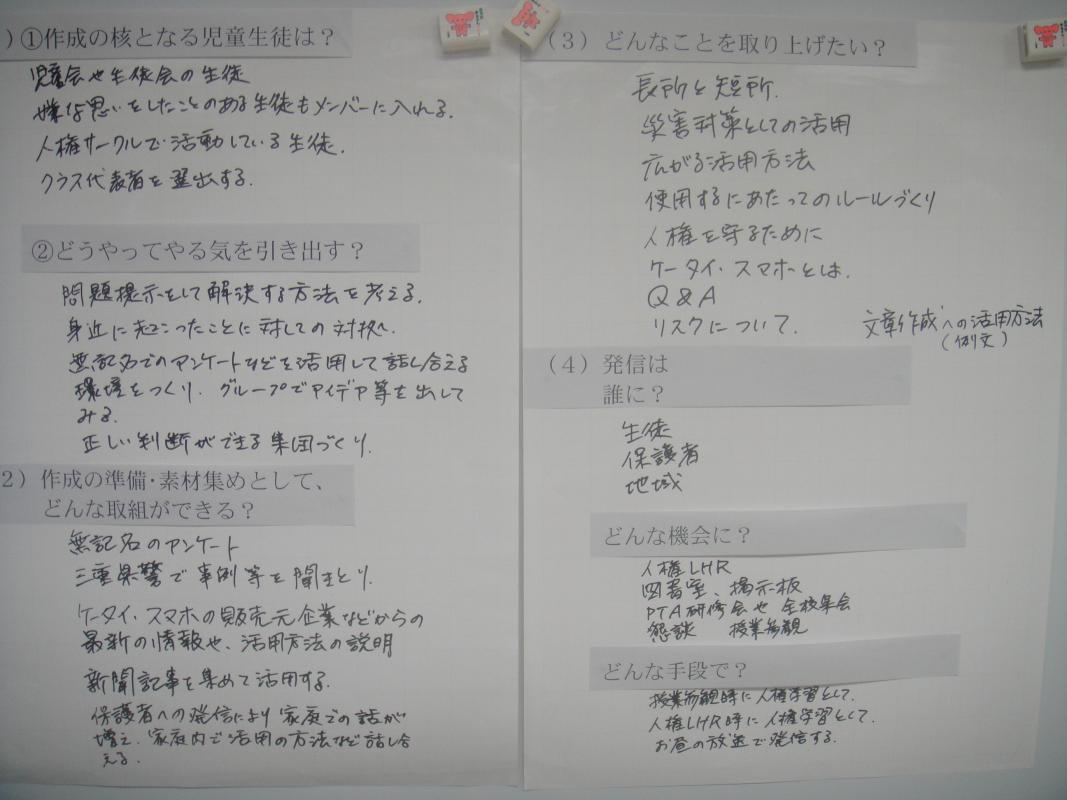 )①作成の核となる児童生徒は？
児童会や生徒会の生徒
嫌な思いをしたことのある生徒もメンバーに入れる.
人権サークルで活動している生徒.
クラス代表者を選出する.
②どうやってやる気を引き出す？
問題提示をして解決する方法を考える.
身近に起こったことに対しての対抗へ.
無記名でのアンケートなどを活用して話し合える
環境をつくり. グループでアイデア等を出して
みる.
正しい判断ができる集団づくり.
2）作成の準備・素材集めとして、
どんな取組ができる？
無記名のアンケート
三重県警で事例等を聞きとり.
ケータイ・スマホの販売元企業などからの
最新の情報や、活用方法の説明
新聞記事を集めて活用する.
保護者への発信により家庭での話が
増え. 家庭内で活用の方法など話し合
える.
（3）どんなことを取り上げたい？
長所と短所.
災害対策としての活用
広がる活用方法
使用するにあたってのルールづくり
人権を守るために
ケータイ・スマホとは.
Q&A
リスクについて.
文章作成への活用方法
(例文)
（4）発信は
誰に？
生徒
保護者
地域
どんな機会に？
人権LHR
図書室、掲示板
PTA研修会や全校集会
懇談 授業参観
どんな手段で？
授業参観時に人権学習として.
人権LHR時に人権学習として.
お昼の放送で発信する.